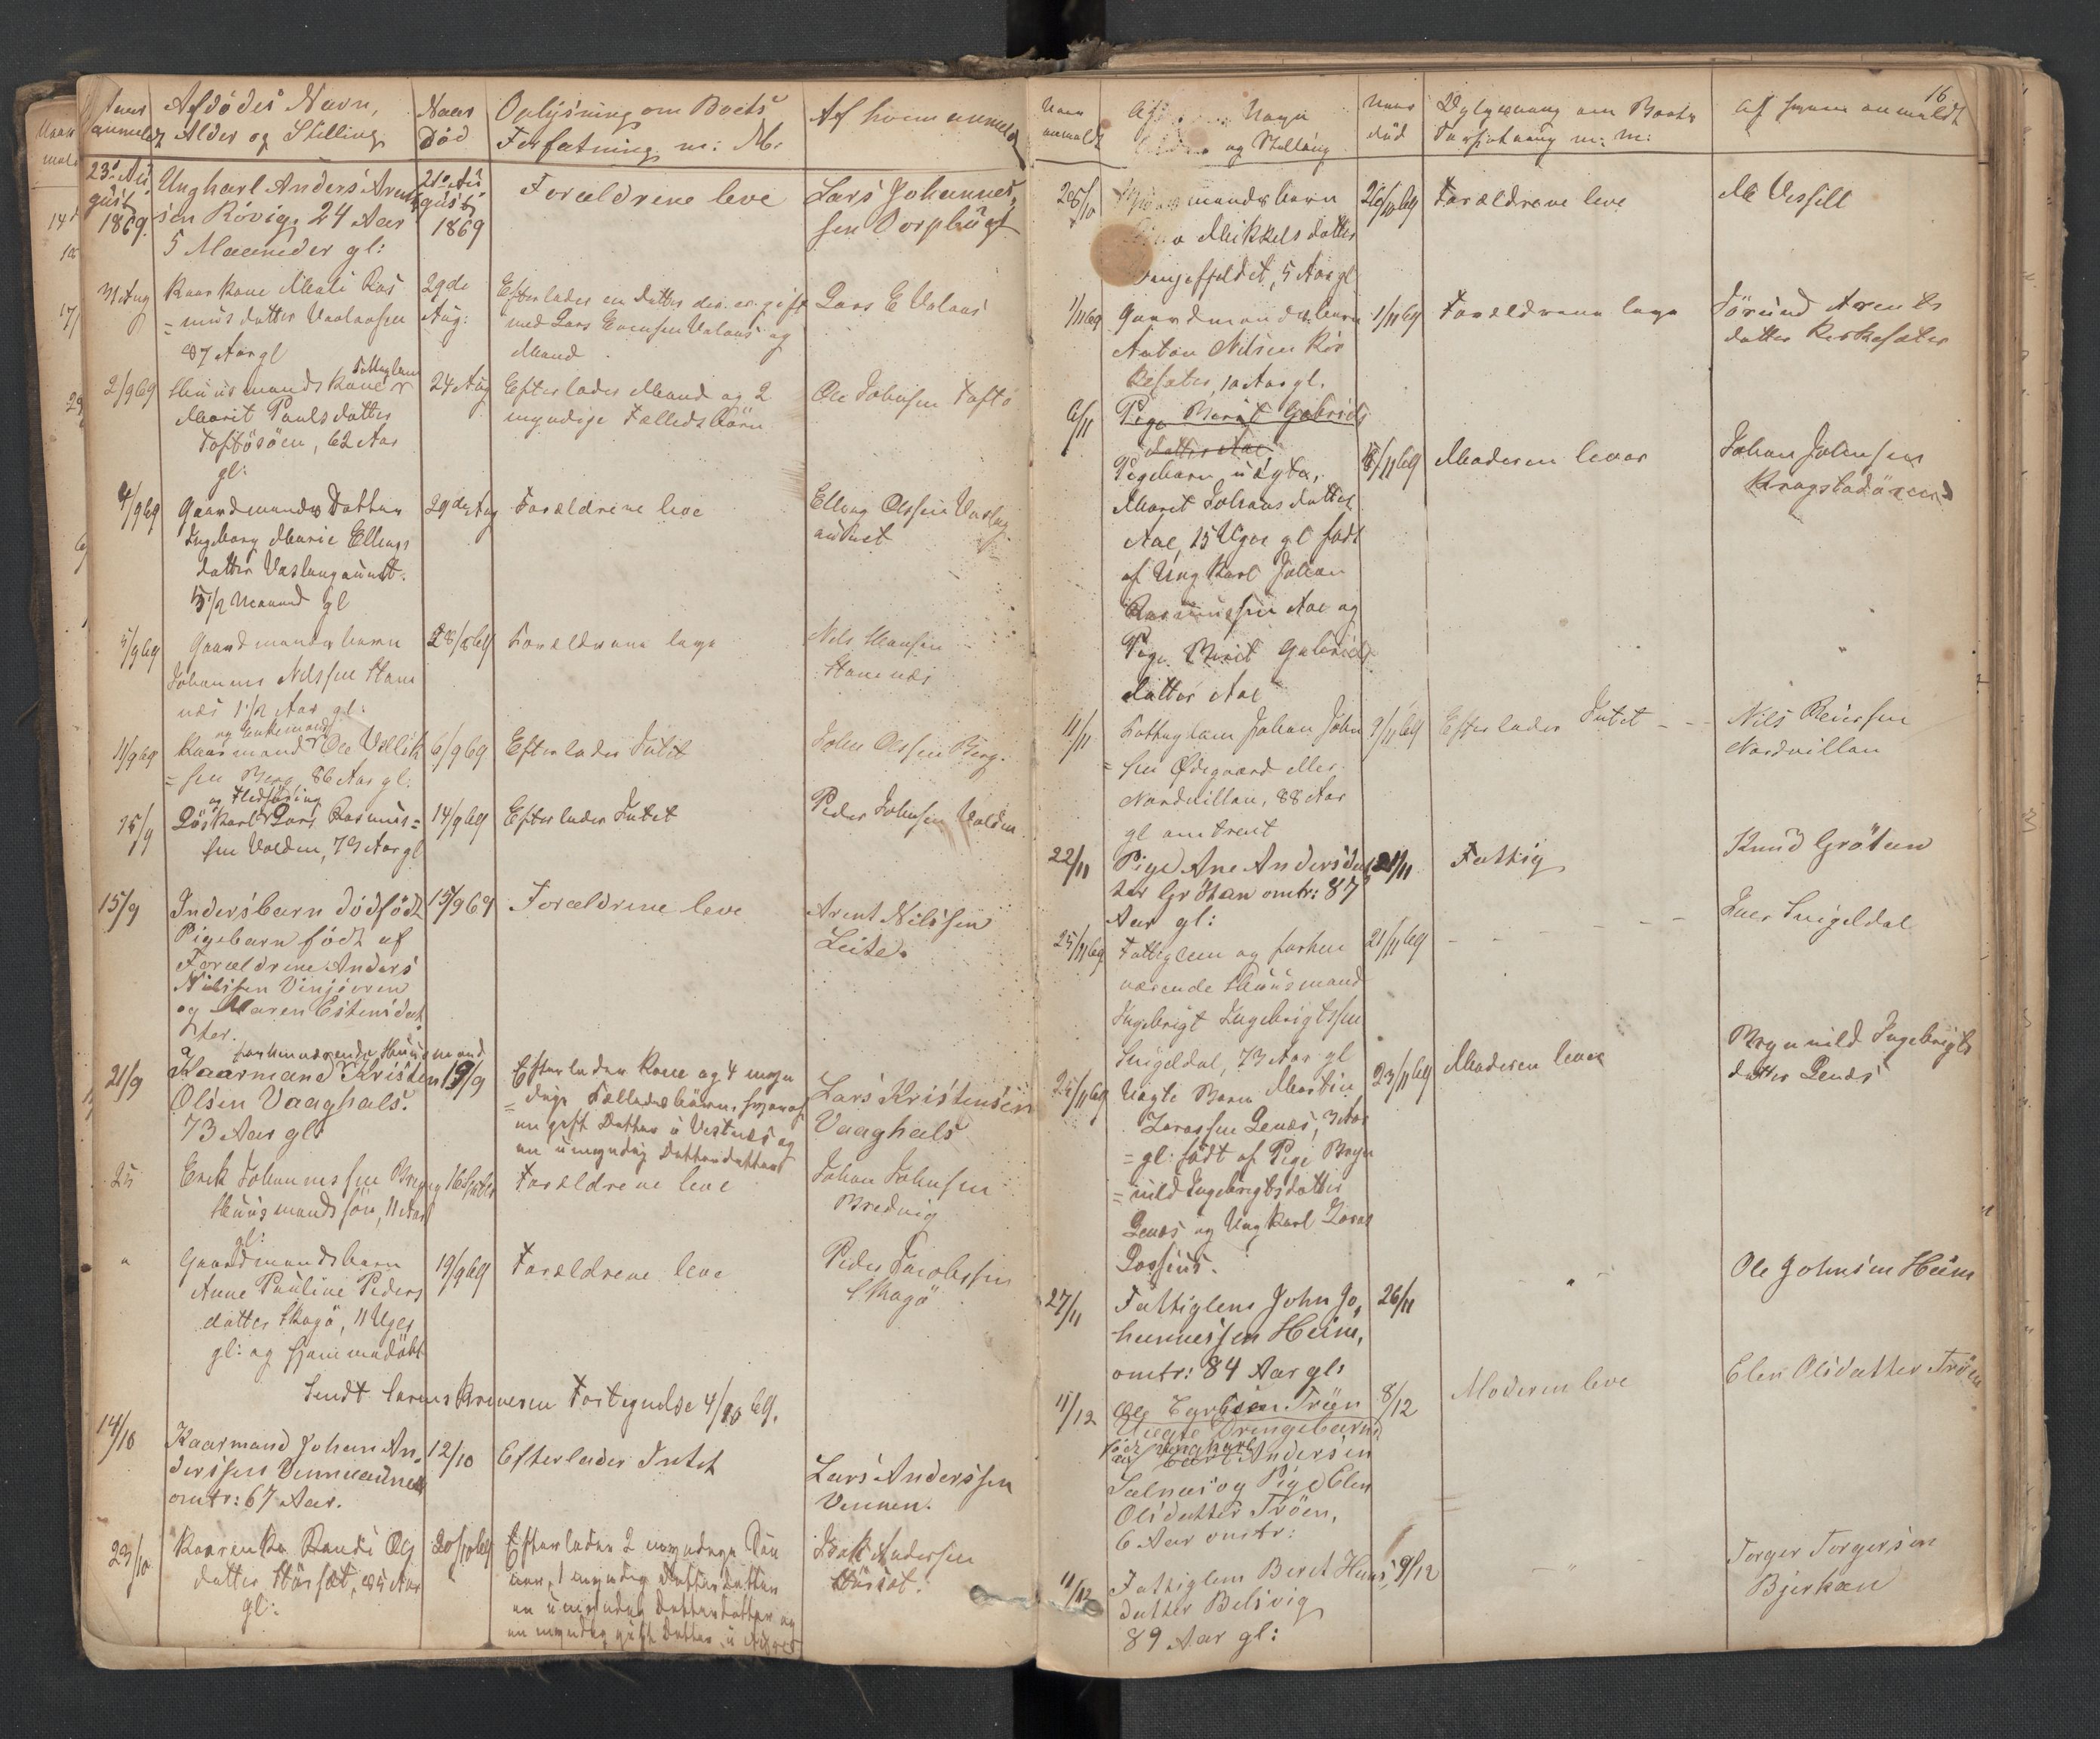 Naar anmeldt
Afdödes Navn, Alder og Stilling
Naar Död
Oplÿsning om Boets Forfatning m: M:
Af hvem anmeldt
23de Au-
gust
1869.
Ungkarl Anders Arent-
sen Rövig, 24 Aar
5 Maaneder gl:
21de Au-
gust
1869
Forældrene leve
Lars Johannes-
sen Dorphügt
31 Aug
Kaarkone Mali Ras
= mus datter Vaalansen
87 Aar gl
29de
Aug:
Efterlader en datter der er gift
med Lars Evensen Valaas og
Mand
Lars E Valaas
2/9 69
Fattiglem
Huusmandskone
Marit Paulsdatter
Toftösöen, 62 Aar
gl:
24 Aug
Efterlader Mand og 2
myndige Fælledsbörn
Ole Johnsen Toftö
4/9 69
Gaardmands Datter
Ingeborg Marie Ellings
datter Vaslangaunet.
5 1/2 Maaned gl
29de Aug
Forældrene leve
Elling Olsen Vaslag
aunet
5/9 69
Gaardmandsbarn
Johannes Nilssen Stam
næs 1 1/2 Aar gl:
28/8 69
Forældrene leve
Nils Hansen
Stamnæs
11/9 69
og Enkemand
Kaarmand Ole Ullrik
= sen Berg, 86 Aar gl:
6/9 69
Efterlader Intet
John Olsen Berg.
15/9
og Fledföring
Löskarl Lars Rasmus=
sen Volden, 79 Aar gl
14/9 69
Efterlader Intet
Peder Johnsen Volden
15/9
Indersbarn dödfödt
Pigebarn födt af
Forældrene Anders
Nilssen Vinjeören
og Maren Estensdat
ter.
15/9 69
Forældrene leve
Arent Nilssen
Leite.
21/9
forhenværende Huusmand
Kaarmand Kristen
Olsen Vaaghals.
73 Aar gl:
19/9
Efterlader Kone og 4 myn
= dige Fælledsbörn, hvoraf
en gift Datter i Vestnæs og
en umyndig Datterdatter
Lars Kristensen
Vaaghals
25
Erik Johannessen Bregvig
Huusmandssön, 11 Aar
gl:
Forældrene leve
Johan Johnsen
Bredvig
"
Gaardmandsbarn
Anne Pauline Peders
datter Skagö, 11 Uger
gl: og hjemmedöbt
19/9 69
Forældrene leve
Peder Jacobssen
Skagö
Sendt Sorenskriveren Fortegnelse 4/10 69.
14/10
Kaarmand Johan An-
derssen Venneaunet
omtr: 67 Aar.
12/10
Efterlader Intet
Lars Anderssen
Vennen.
23/10
Kaarenke Randi Ols
datter Störset, 85 Aar
gl:
20/10 69
Efterlader 2 myndige Sön
ner, 1 myndig Datterdatter
en umyndig Datterdatter og
en myndig gift Datter i
Isak Andersen
Störset.
16
Naar anmeldt
Navn
og Stilling
Naar död
Oplysning om Boets Forfatning m: m:
Af hvem anmeldt
28/10
mandsbarn
Mikkelsdatter
5 Aar gl
26/10 69
Forældrene leve
M Vessell
1/11 69
Gaardmandsbarn
Anton Nilsen Kir
kesæter, 10 Aar gl.
1/11 69
Forældrene leve
Jörund Arents
datter Kirkesæter
6/11
Pige Berit Gabriels
datter Aae
Pigebarn uægte,
Marit Johansdatter
Aae, 15 Uger gl födt
af Ungkarl Johan
Rasmussen Aae og
Pige Berit Gabriels
datter Aae
/11 69
Moderen lever
Johan Johnsen
Krogstadören
11/11
Fattiglem Johan John
= sen Ødegaard eller
Nordvillan, 88 Aar
gl omtrent
9/11 69
Efterlader Intet
Nils Reiersen
Nordvillan
22/11
Pige Ane Andersdat
ter Grötan omtr: 87
Aar gl:
21/11
Fattig
Knud Grötan
25/11 69
Fattiglem og forhen
værende Huusmand
Ingebrigt Ingebrigtssen
Snigeldal, 73 Aar gl
21/11 69
Iver Snigeldal
25/11 69
Uægte Barn Martin
Larssen Lenæs, 3 Aar
= gl: födt af Pige Bryn
= hild Ingebrigtsdatter
Lenæs og Ungkarl Lars
Lossius.
23/11 69
Moderen lever
Brynnild Ingebrigts
datter Lenæs
27/11
Fattiglem John Jo-
hannessen Heim,
omtr: 84 Aar gl:
26/11
"
Ole Johnsen Heim
11/12
Ole Carlsen Tröen
Uægte Drengebarn
födt af Ungkarl
Carl Andersen
Salnæs og Pige Elen
Olsdatter Tröen,
6 Aar omtr:
8/12
Moderen leve
Elen Olsdatter Tröen
11/12
Fattiglem Berit Hans-
datter Belsvig
89 Aar gl:
9/12
"
Torger Torgersen
Bjerkan